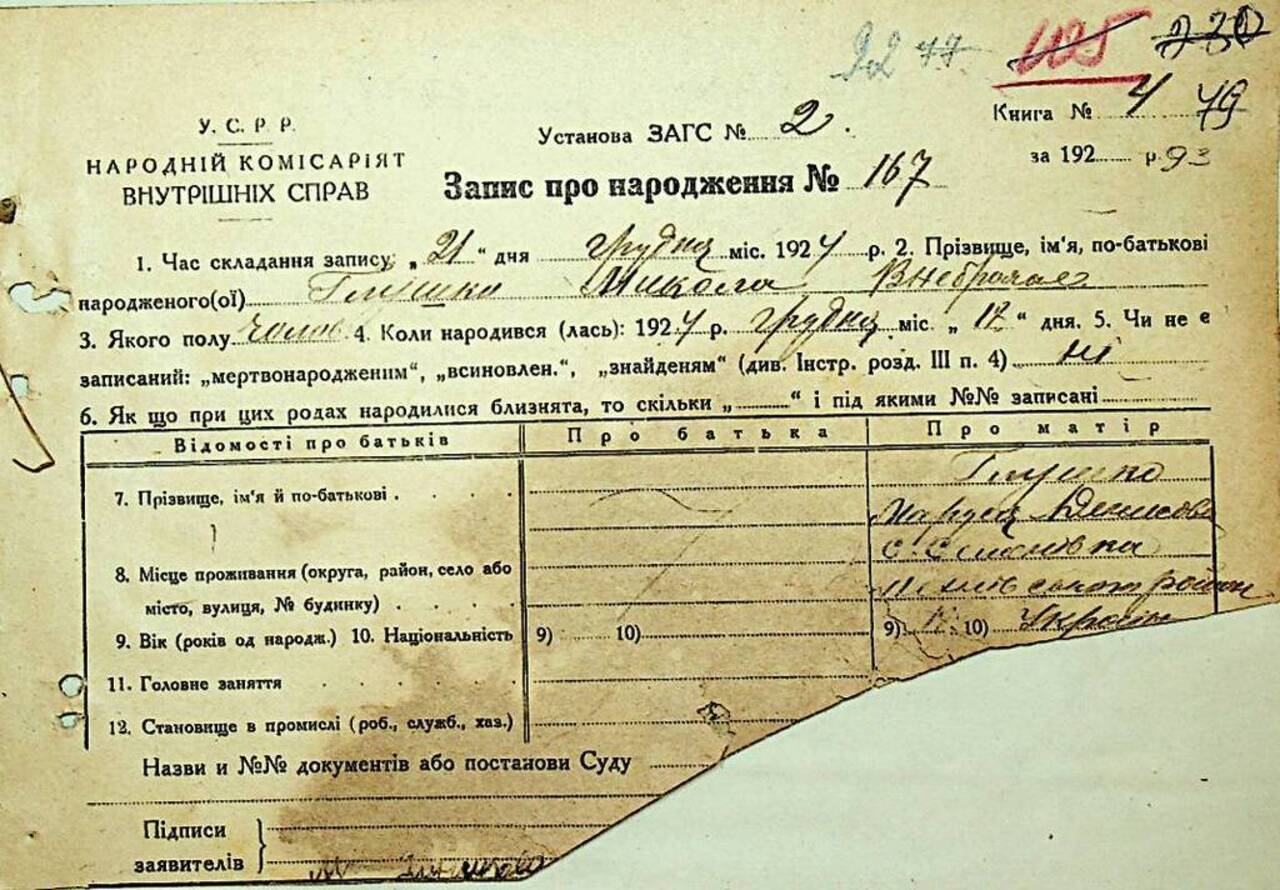 22 77 1125 220
У. С. Р. Р.
НАРОДНІЙ КОМІСАРІЯТ
ВНУТРІШНІХ СПРАВ
Установа ЗАГС № 2.
Книга № 4 79
за 192 р. 93
Запис про народження № 167
1. Час складання запису „21“ дня грудня міс. 1924 р. 2. Прізвище, ім'я, по-батькові
народженого(ої) Глушко Микола
3. Якого полу чолов. 4. Коли народився (лась): 1924 р. грудня міс. „17“ дня. 5. Чи не є
записаний: „мертвонародженим“, „всиновлен.“, „знайденям“ (див. Інстр. розд. III п. 4) ні
6. Як що при цих родах народилися близнята, то скільки „ “ і під якими №№ записані
Відомості про батьків Про батька Про матір
7. Прізвище, ім'я й по-батькові Глушко
Маруся Денисова
8. Місце проживання (округа, район, село або
місто, вулиця, № будинку) с. Семоновка
район
9. Вік (років од народж.) 10. Національність 9) 10) 9) 10) Україн
11. Головне заняття
12. Становище в промислі (роб., служб., хаз.)
Назви и №№ документів або постанови Суду
Підписи
заявителів